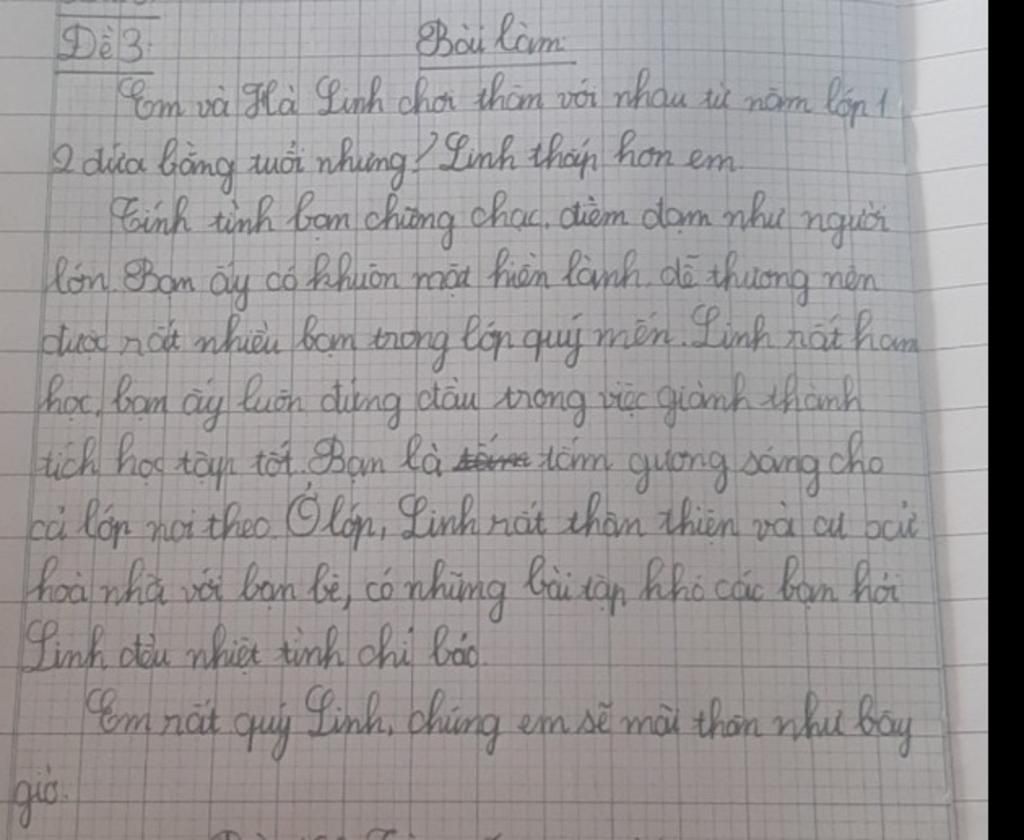 Đề 3: Bài làm:
Em và Hà Linh chơi thân với nhau từ năm lớp 1
2 đứa bằng tuổi nhưng Linh thấp hơn em.
Tính tình bạn chững chạc, điềm đạm như người
lớn. Bạn ấy có khuôn mặt hiền lành, dễ thương nên
được rất nhiều bạn trong lớp quý mến. Linh rất ham
học, bạn ấy luôn đứng đầu trong việc giành thành
tích học tập tốt. Bạn là tấm gương sáng cho
cả lớp noi theo. Ở lớp, Linh rất thân thiện và cư xử
hoà nhã với bạn bè, có những bài tập khó các bạn hỏi
Linh đều nhiệt tình chỉ bảo.
Em rất quý Linh, chúng em sẽ mãi thân như bây
giờ.